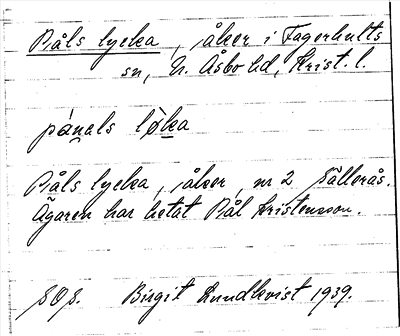 Påls lycka, åker i Fagerhults
sn, N. Åsbo hd, Krist. l.
lycka
Påls lycka, åker, nr 2
Ägaren har hetat Pål Kristensson.
SOS. Birgit Lundkvist 1939.